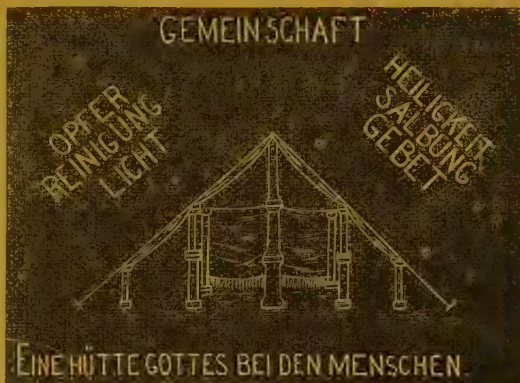 GEMEINSCHAFT
OPFER
REINIGUNG
LICHT
HEILIGKEIT
SALBUNG
GEBET
EINE HÜTTE GOTTES BEI DEN MENSCHEN.